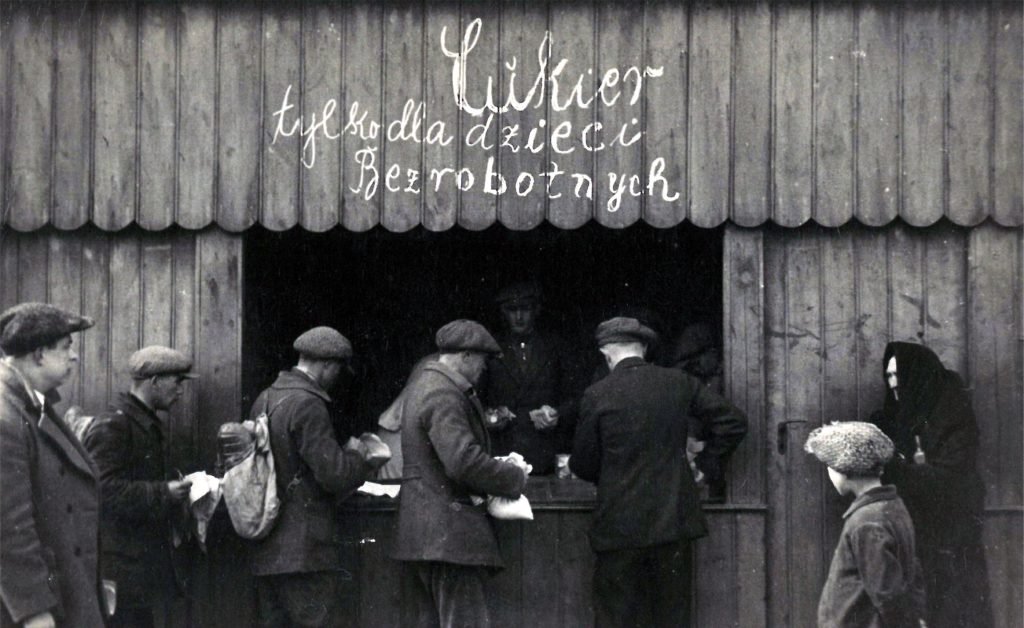 Cukier
tylko dla dzieci
Bezrobotnych